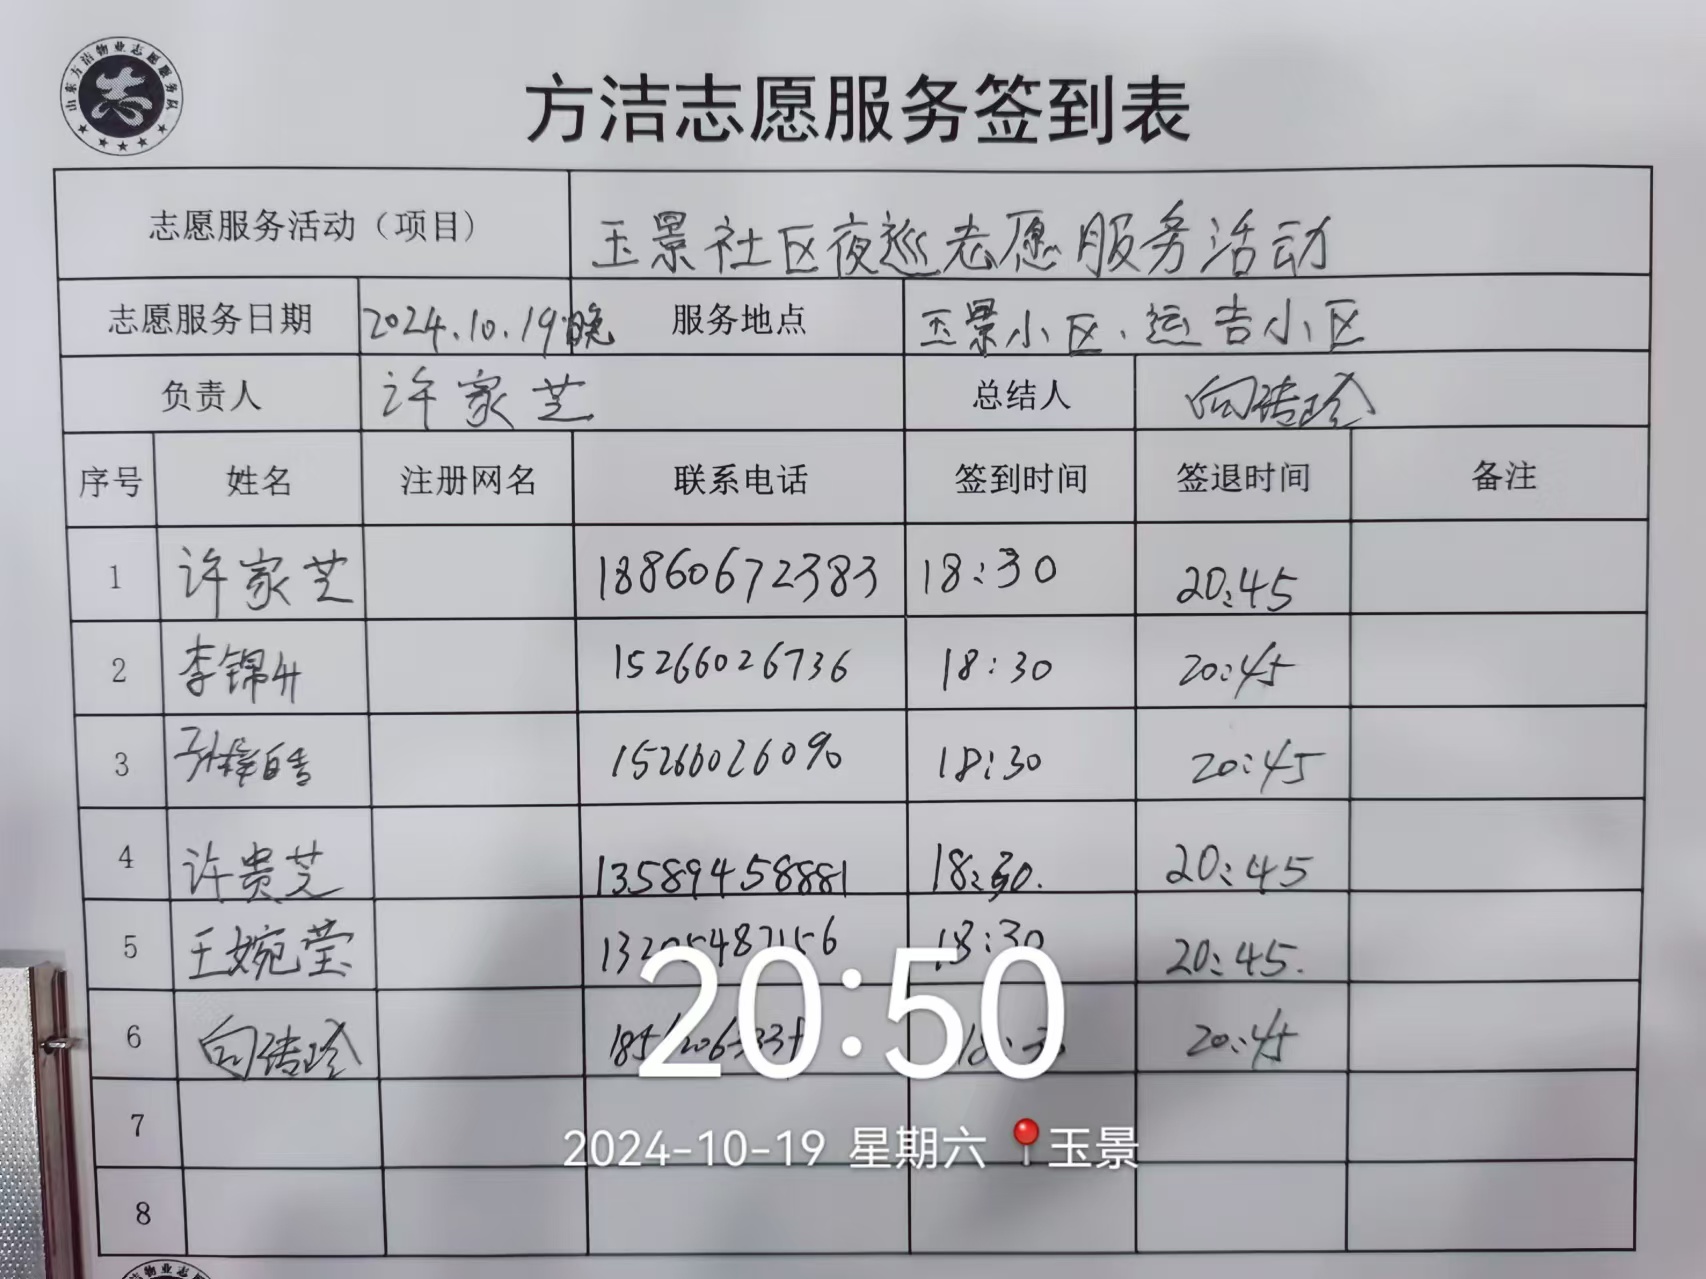 山东方洁物业志愿服务队
志
方洁志愿服务签到表
志愿服务活动（项目） 玉景社区夜巡志愿服务活动
志愿服务日期 2024.10.19晚 服务地点 玉景小区、运吉小区
负责人 许家芝 总结人 向
序号 姓名 注册网名 联系电话 签到时间 签退时间 备注
1 许家芝 18860672383 18:30 20:45
2 李锦升 15266026736 18:30 20:45
3 孙 15266026090 18:30 20:45
4 许贵芝 13589458881 18:30. 20:45
5 王婉莹 18:30 20:45.
6 向 20:45
20:50
7
2024-10-19 星期六 玉景
8